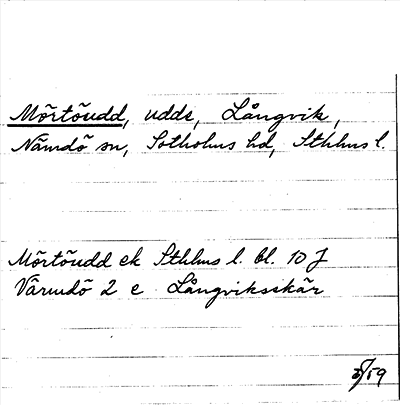 Mörtöudd, udde, Långvik,
Nämdö sn, Sotholms hd, Sthlms l.
Mörtöudd ek Sthlms l. bl. 10 J
Värmdö 2 e Långviksskär
/59